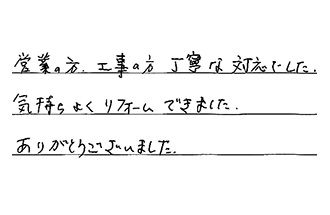 営業の方、工事の方 丁寧な対応でした。
気持ちよくリフォームできました。
ありがとうございました。